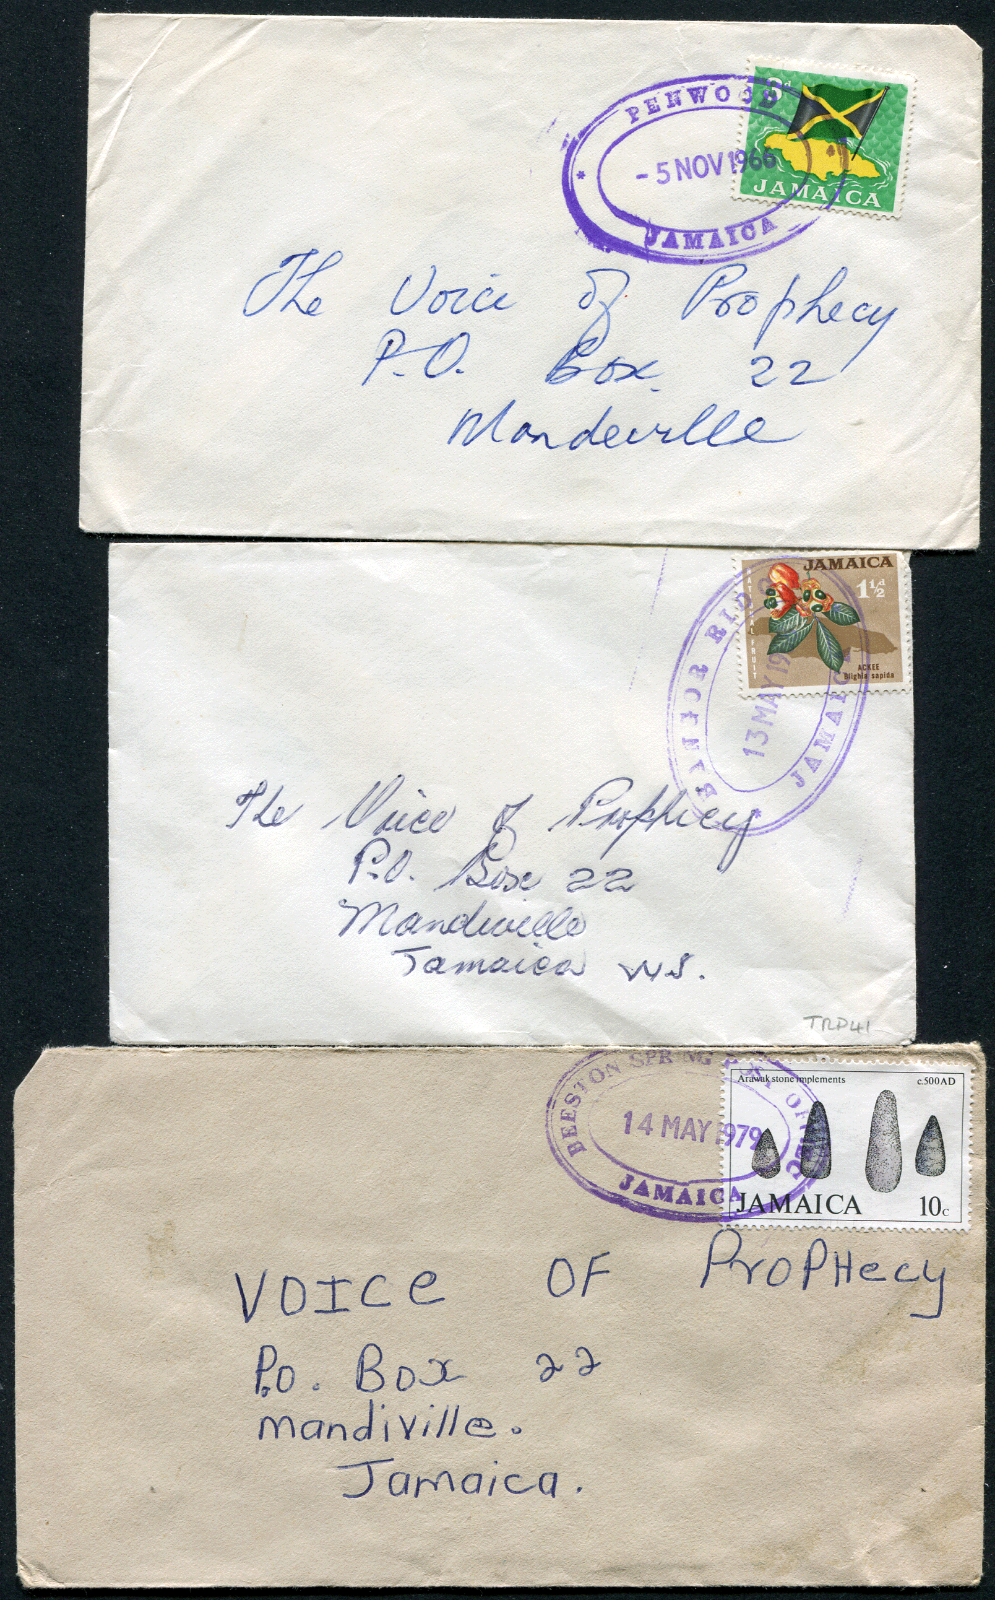 PENWOOD
- 5 NOV 1966
JAMAICA
3d
JAMAICA
The Voice of Prophecy
P.O. Box 22
Mandeville
JAMAICA
1½d
NATIONAL FRUIT
ACKEE
Blighia sapida
13 MAY 19
JAMAICA
The Voice of Prophecy
P.O. Box 22
Mandiville
Jamaica W.I.
TRD41
BEESTON SPRING POST OFFICE
14 MAY 1979
JAMAICA
Arawak stone implements c.500AD
JAMAICA 10c
VOICe OF ProPHecy
P.O. Box 22
mandiville.
Jamaica.